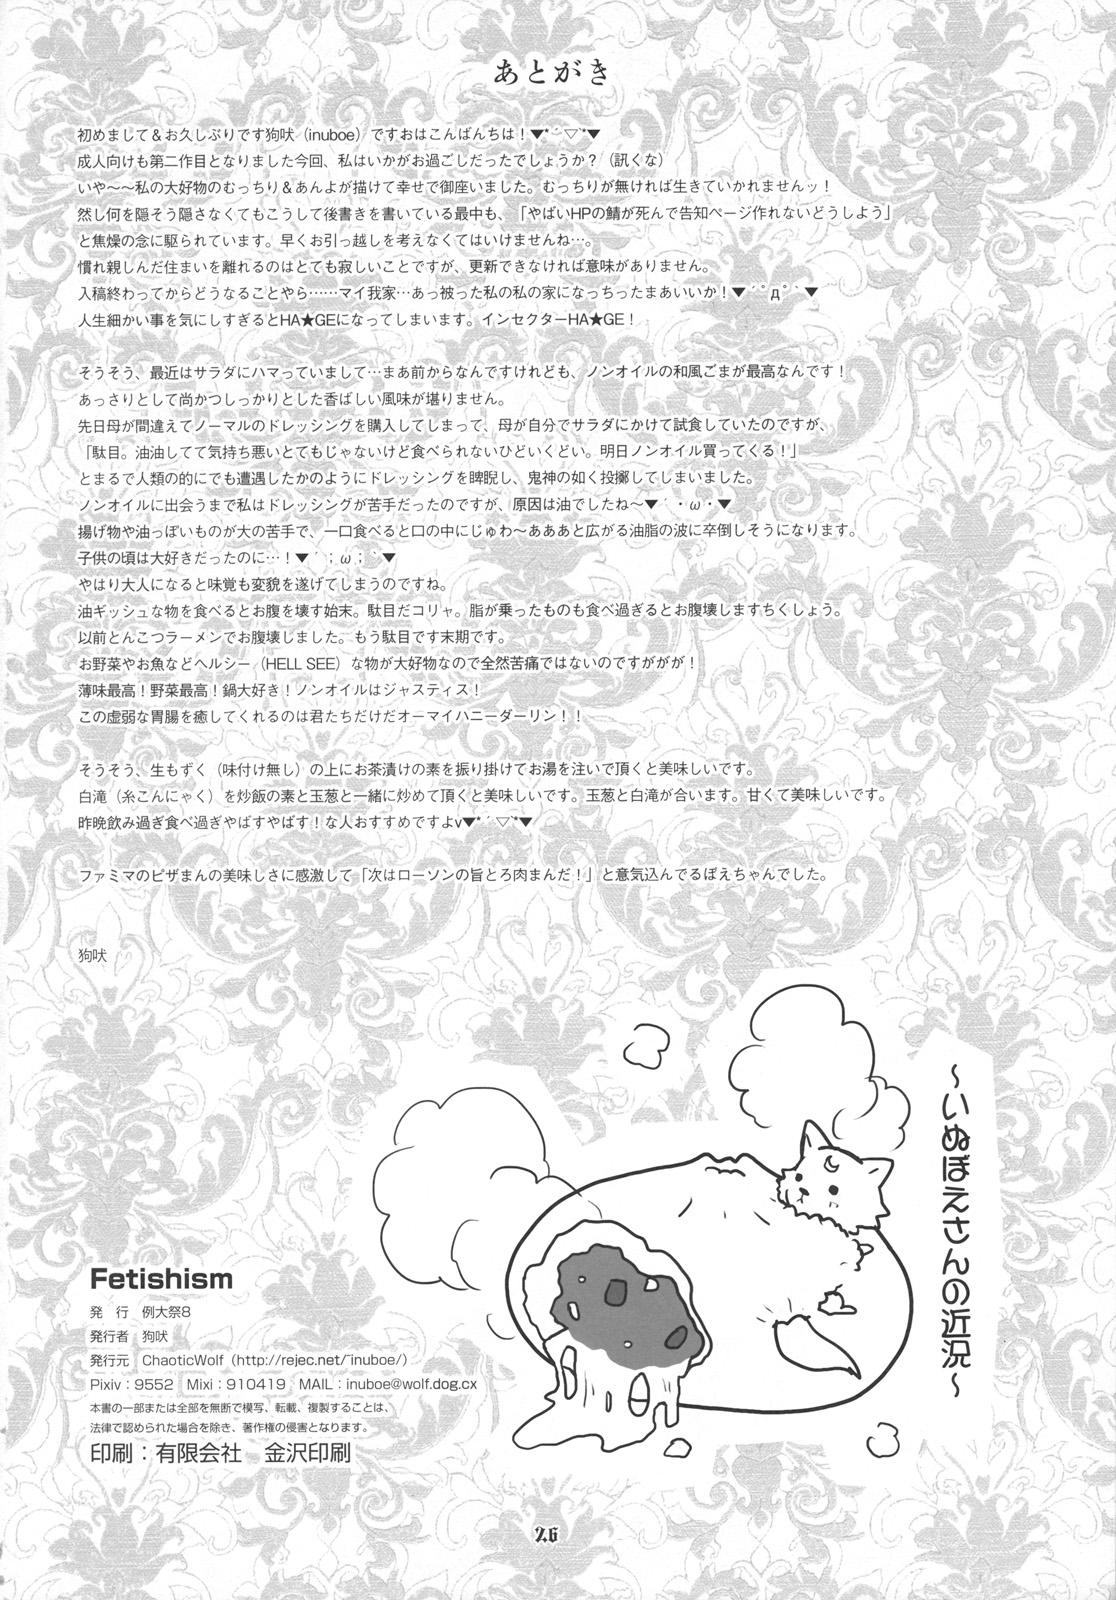 あとがき
初めまして＆お久しぶりです狗吠（inuboe）ですおはこんばんちは！▼*´▽`*▼
成人向けも第二作目となりました今回、私はいかがお過ごしだったでしょうか？（訊くな）
いや～～私の大好物のむっちり＆あんよが描けて幸せで御座いました。むっちりが無ければ生きていかれませんッ！
然し何を隠そう隠さなくてもこうして後書きを書いている最中も、「やばいHPの鯖が死んで告知ページ作れないどうしよう」
と焦燥の念に駆られています。早くお引っ越しを考えなくてはいけませんね…。
慣れ親しんだ住まいを離れるのはとても寂しいことですが、更新できなければ意味がありません。
入稿終わってからどうなることやら……マイ我家…あっ被った私の私の家になっちったまあいいか！▼´ﾟдﾟ`▼
人生細かい事を気にしすぎるとHA★GEになってしまいます。インセクターHA★GE！
そうそう、最近はサラダにハマっていまして…まあ前からなんですけれども、ノンオイルの和風ごまが最高なんです！
あっさりとして尚かつしっかりとした香ばしい風味が堪りません。
先日母が間違えてノーマルのドレッシングを購入してしまって、母が自分でサラダにかけて試食していたのですが、
「駄目。油油してて気持ち悪いとてもじゃないけど食べられないひどいくどい。明日ノンオイル買ってくる！」
とまるで人類の的にでも遭遇したかのようにドレッシングを睥睨し、鬼神の如く投擲してしまいました。
ノンオイルに出会うまで私はドレッシングが苦手だったのですが、原因は油でしたね～▼´・ω・▼
揚げ物や油っぽいものが大の苦手で、一口食べると口の中にじゅわ～あああと広がる油脂の波に卒倒しそうになります。
子供の頃は大好きだったのに…！▼´；ω；`▼
やはり大人になると味覚も変貌を遂げてしまうのですね。
油ギッシュな物を食べるとお腹を壊す始末。駄目だコリャ。脂が乗ったものも食べ過ぎるとお腹壊しますちくしょう。
以前とんこつラーメンでお腹壊しました。もう駄目です末期です。
お野菜やお魚などヘルシー（HELL SEE）な物が大好物なので全然苦痛ではないのですががが！
薄味最高！野菜最高！鍋大好き！ノンオイルはジャスティス！
この虚弱な胃腸を癒してくれるのは君たちだけだオーマイハニーダーリン！！
そうそう、生もずく（味付け無し）の上にお茶漬けの素を振り掛けてお湯を注いで頂くと美味しいです。
白滝（糸こんにゃく）を炒飯の素と玉葱と一緒に炒めて頂くと美味しいです。玉葱と白滝が合います。甘くて美味しいです。
昨晩飲み過ぎ食べ過ぎやばすやばす！な人おすすめですよv▼*´▽`*▼
ファミマのピザまんの美味しさに感激して「次はローソンの旨とろ肉まんだ！」と意気込んでるぼえちゃんでした。
狗吠
～いぬぼえさんの近況～
Fetishism
発　行　例大祭8
発行者　狗吠
発行元　ChaoticWolf（http://rejec.net/~inuboe/）
Pixiv：9552　Mixi：910419　MAIL：inuboe@wolf.dog.cx
本書の一部または全部を無断で模写、転載、複製することは、
法律で認められた場合を除き、著作権の侵害となります。
印刷：有限会社　金沢印刷
26